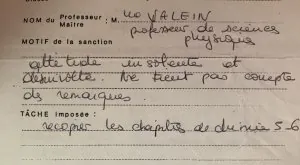 NOM du Professeur : M. VALEIN
Maître
professeur de sciences
physiques
MOTIF de la sanction
attitude insolente et
désinvolte. Ne tient pas compte
des remarques.
TÂCHE imposée :
recopier les chapitres de chimie 5-6